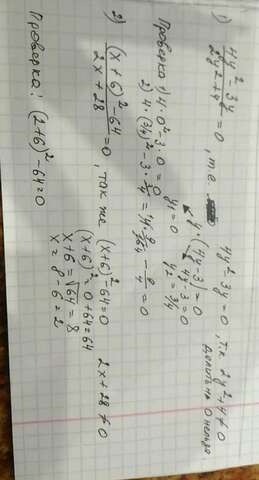 1) (4y² - 3y)/(2y² + 4) = 0, т.е. 4y² - 3y = 0, т.к. 2y² + 4 ≠ 0
делить на 0 нельзя.
y · (4y - 3) = 0
y₁ = 0 4y - 3 = 0
y₂ = 3/4
Проверка 1) 4 · 0² - 3 · 0 = 0
2) 4 · (3/4)² - 3 · 3/4 = 4 · 9/64 - 9/4 = 0
2) ((x+6)² - 64)/(2x + 28) = 0, так же (x+6)² - 64 = 0 2x + 28 ≠ 0
(x+6)² = 0 + 64 = 64
x + 6 = √64 = 8
x = 8 - 6 = 2
Проверка: (2+6)² - 64 = 0